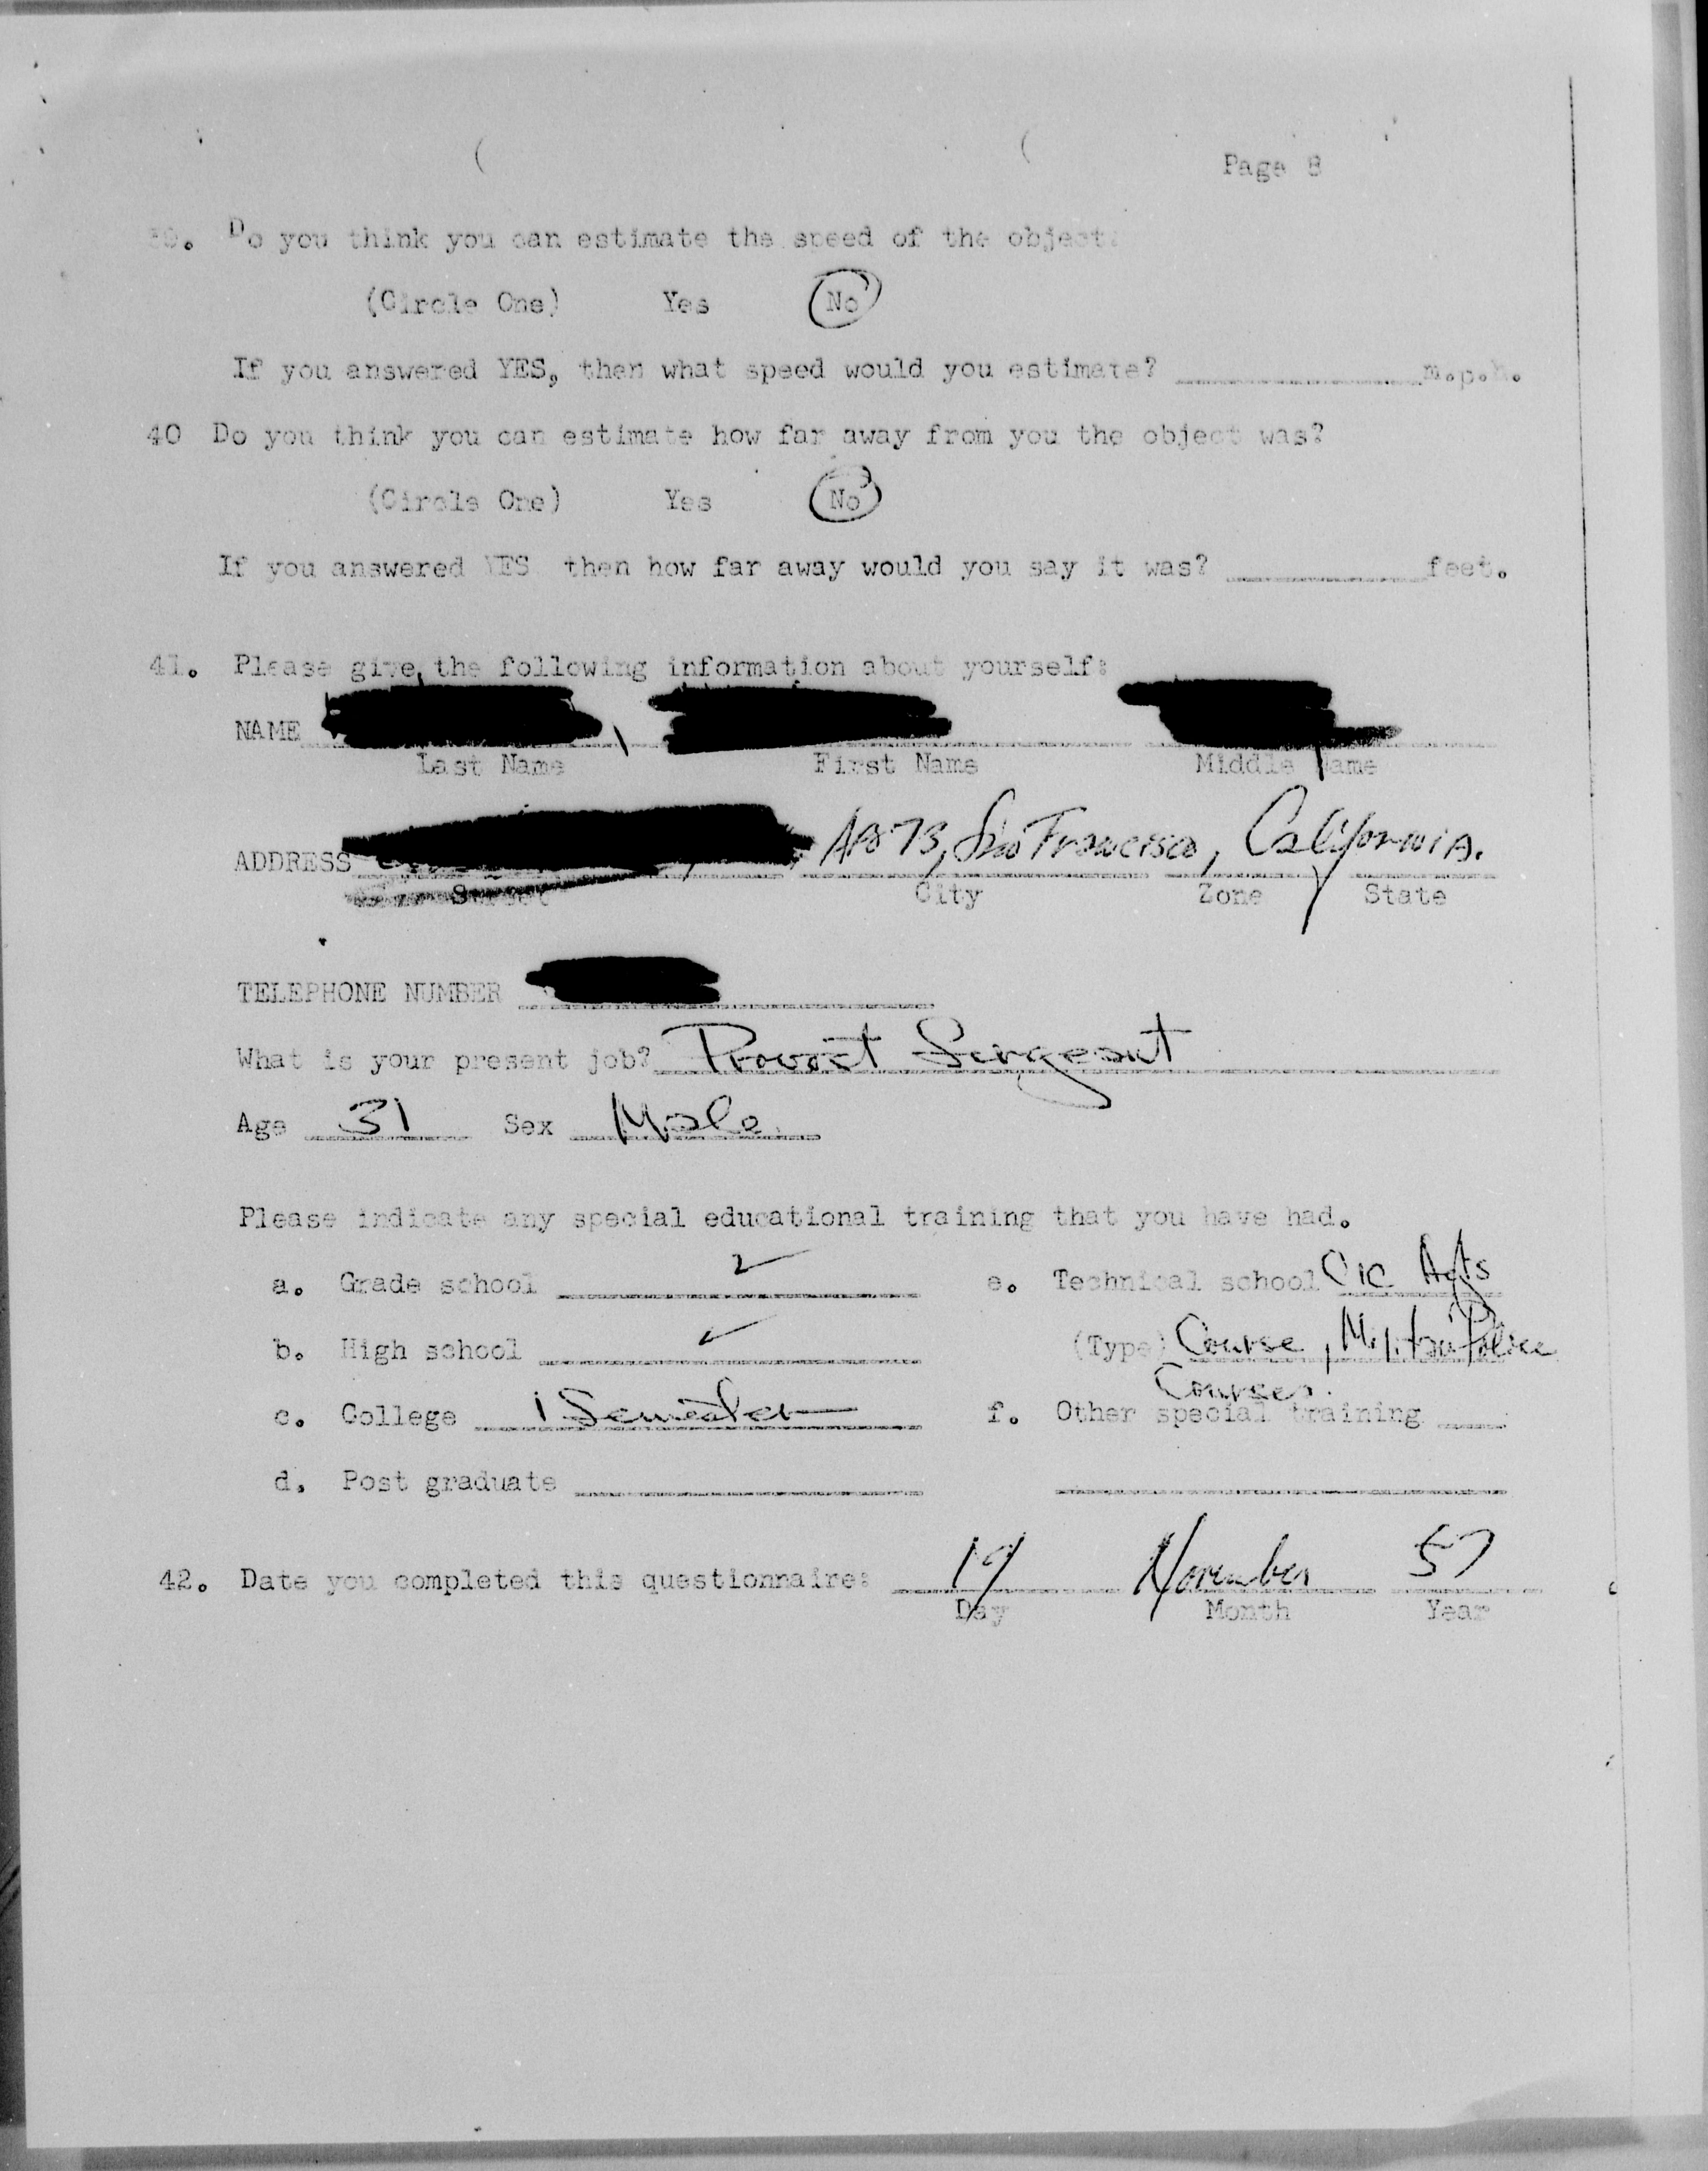 Page 8
39. Do you think you can estimate the speed of the object
(Circle One) Yes No
If you answered YES, then what speed would you estimate? m.p.h.
40 Do you think you can estimate how far away from you the object was?
(Circle One) Yes No
If you answered YES then how far away would you say it was? feet.
41. Please give the following information about yourself:
NAME
Last Name First Name Middle Name
ADDRESS APO 73, San Francisco, California.
Street City Zone State
TELEPHONE NUMBER
What is your present job? Provost Sergeant
Age 31 Sex Male
Please indicate any special educational training that you have had.
a. Grade school ✓ e. Technical school CIC Agts
b. High school ✓ (Type) Course, Military Police
Courses.
c. College 1 Semester f. Other special training
d. Post graduate
42. Date you completed this questionnaire: 19 November 57
Day Month Year